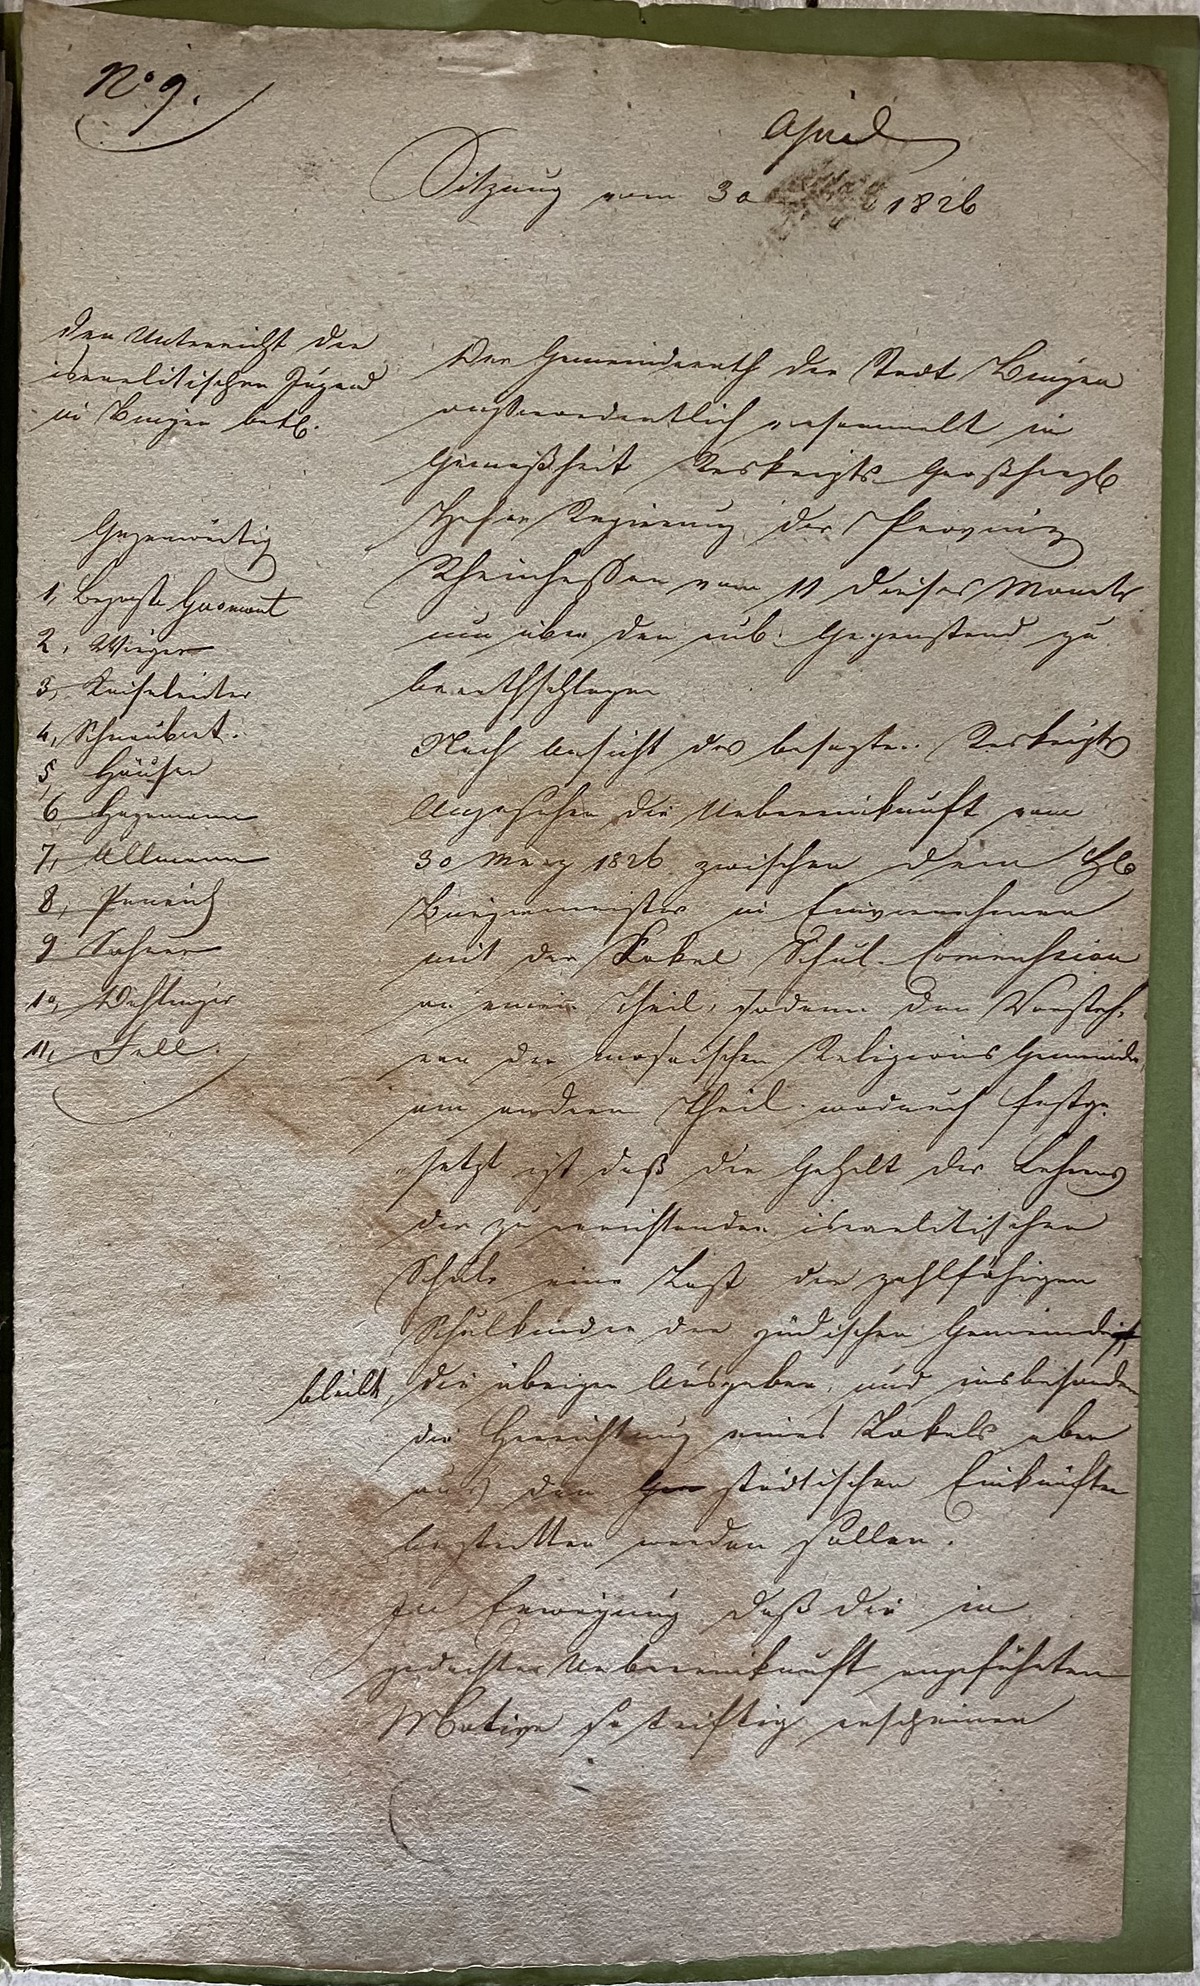 No 9.
April
Sitzung vom 30 1826
Den Unterricht der
israelitischen Jugend
in Bingen betr.
Gegenwärtig
1,
2,
3,
4,
5, Häuser
6, Hagemann
7, Ullmann
8,
9
10,
11, Fell.
Der Gemeinderath der Stadt Bingen
außerordentlich versammelt in
Gemäßheit Reskripts Großherzgl
Hess. Regierung der Provinz
Rheinhessen vom 11 dieses Monats
um über den rub. Gegenstand zu
berathschlagen
Nach Ansicht des besagten Reskripts
Angesehen die Uebereinkunft vom
30 Merz 1826 zwischen dem
Bürgermeister in Einvernehmen
mit der Lokal Schul-Commission
an einem Theil, sodann den Vorsteh-
ern der mosaischen Religions Gemeinde
am andern Theil wodurch festge-
setzt ist daß der Gehalt des Lehrers
der zu errichtenden israelitischen
Schule eine Last der zahlfähigen
Schulkinder der jüdischen Gemeinde
bleibt, die übrigen Ausgaben, und insbesondere
die Herrichtung eines Lokals aber
aus den städtischen Einkünften
bestritten werden sollen.
In Erwägung daß die in
gedachter Uebereinkunft angeführten
Motive so triftig erscheinen